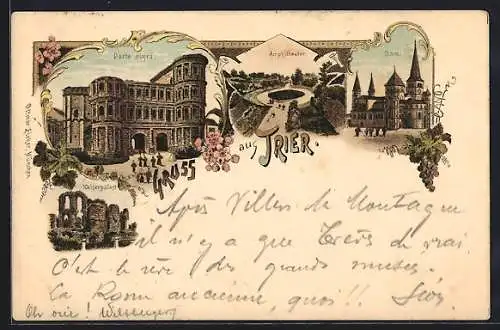 Porta nigra
Amphitheater
Dom.
Kaiserpalast
GRUSS aus TRIER.
Après Villers la Montagne
il n'y a que Trèves de vrai
C'est le rêve des grands
La Rome ancienne, quoi!!
Oh oui!